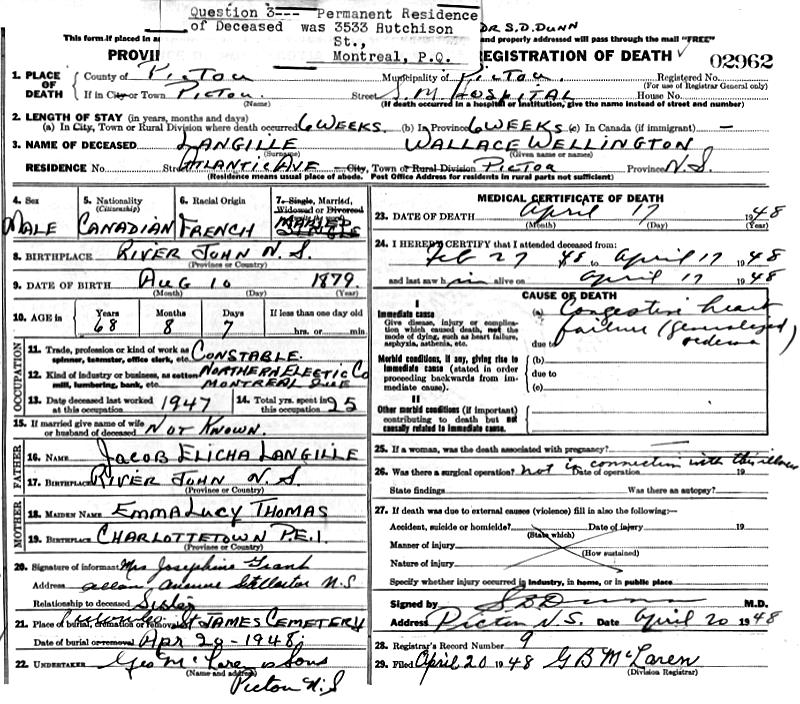 Question 3--- Permanent Residence
of Deceased was 3533 Hutchison
St.,
Montreal, P.Q.
DR S.D. DUNN
This form if placed in a and properly addressed will pass through the mail "FREE"
PROVIN EGISTRATION OF DEATH
02962
1. PLACE OF DEATH
County of Pictou Municipality of Pictou Registered No.
(For use of Registrar General only)
If in City or Town Pictou Street S.M. HOSPITAL House No.
(Name) (If death occurred in a hospital or institution, give the name instead of street and number)
2. LENGTH OF STAY (in years, months and days)
(a) In City, Town or Rural Division where death occurred 6 WEEKS. (b) in Province 6 WEEKS (c) in Canada (if immigrant) —
3. NAME OF DECEASED LANGILLE WALLACE WELLINGTON
(Surname) (Given name or names)
RESIDENCE No. Street ATLANTIC AVE City, Town or Rural Division PICTOU Province N.S.
(Residence means usual place of abode. Post Office Address for residents in rural parts not sufficient)
4. Sex MALE
5. Nationality (Citizenship) CANADIAN
6. Racial Origin FRENCH
7. Single, Married, Widowed or Divorced
8. BIRTHPLACE RIVER JOHN N.S.
(Province or Country)
9. DATE OF BIRTH AUG 10 1879.
(Month) (Day) (Year)
10. AGE IN Years 68 Months 8 Days 7 If less than one day old
hrs. or min.
OCCUPATION
11. Trade, profession or kind of work as spinner, teamster, office clerk, etc. CONSTABLE.
12. Kind of industry or business, as cotton mill, lumbering, bank, etc. NORTHERN ELECTIC Co
MONTREAL QUE
13. Date deceased last worked at this occupation 1947
14. Total yrs. spent in this occupation 25
15. If married give name of wife or husband of deceased NOT KNOWN.
FATHER
16. NAME JACOB ELICHA LANGILLE
17. BIRTHPLACE RIVER JOHN N.S.
(Province or Country)
MOTHER
18. MAIDEN NAME EMMA LUCY THOMAS
19. BIRTHPLACE CHARLOTTETOWN P.E.I.
(Province or Country)
20. Signature of informant Mrs Josephine Grant
Address Allan Avenue Stellarton N.S
Relationship to deceased Sister
21. Place of burial, cremation or removal St JAMES CEMETERY
Date of burial or removal Apr 20 - 1948.
22. UNDERTAKER Geo McLaren & Sons
(Name and address)
Pictou N.S
MEDICAL CERTIFICATE OF DEATH
23. DATE OF DEATH April 17 1948
(Month) (Day) (Year)
24. I HEREBY CERTIFY that I attended deceased from:
Feb 27 48 to April 17 1948
and last saw him alive on April 17 1948
CAUSE OF DEATH
I
Immediate cause
Give disease, injury or complication which caused death, not the mode of dying, such as heart failure, asphyxia, asthenia, etc.
(a) Congestive heart
failure (generalized
oedema)
due to
Morbid conditions, if any, giving rise to immediate cause (stated in order proceeding backwards from immediate cause).
(b)
due to
(c)
II
Other morbid conditions (if important) contributing to death but not causally related to immediate cause.
25. If a woman, was the death associated with pregnancy? —
26. Was there a surgical operation? Not in connection with this illness
Date of operation 19
State findings Was there an autopsy?
27. If death was due to external causes (violence) fill in also the following:—
Accident, suicide or homicide? Date of injury 19
(State which)
Manner of injury
(How sustained)
Nature of injury
Specify whether injury occurred in industry, in home, or in public place
Signed by S D Dunn M.D.
Address Pictou N.S. Date April 20 1948
28. Registrar's Record Number 9
29. Filed April 20 1948 G B McLaren
(Division Registrar)